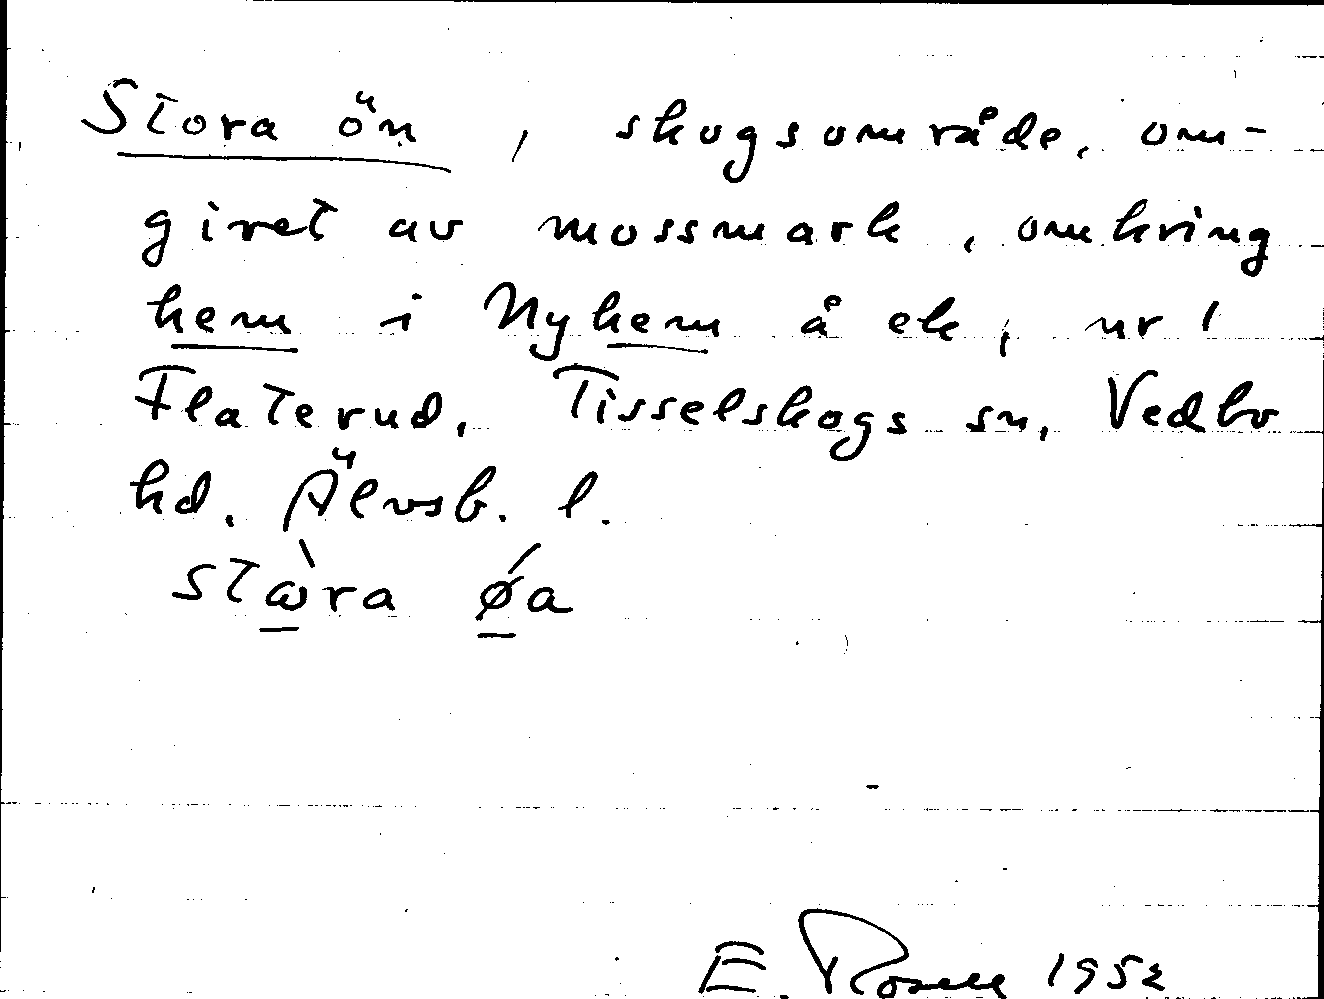 Stora ön, skogsområde, om-
givet av mossmark, omkring
hem i Nyhem å ek, nr 1
Flaterud, Tisselskogs sn, Vedbo
hd. Älvsb. l.
stὼra ǿa
E. Rosell 1952